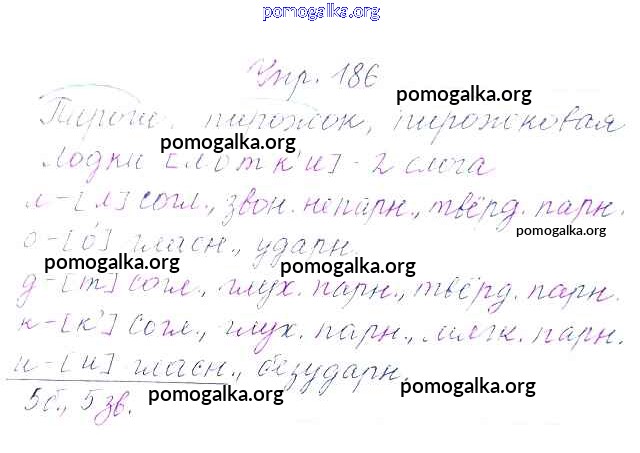 pomogalka.org
Упр. 186
pomogalka.org
Пироги, пирожок, пирожковая
pomogalka.org
Лодки [лотк'и] - 2 слога
л-[л] согл., звон. непарн., твёрд. парн.
pomogalka.org
о-[о́] гласн., ударн.
pomogalka.org pomogalka.org
д-[т] согл., глух. парн., твёрд. парн.
к-[к'] согл., глух. парн., мягк. парн.
и-[и] гласн., безударн.
pomogalka.org pomogalka.org
5б., 5 зв.